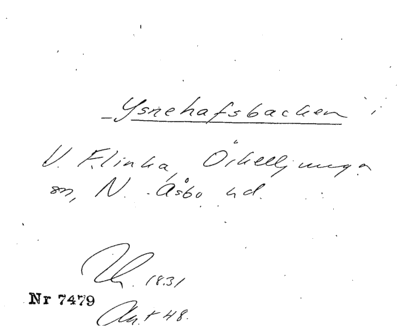 Ysnehafsbacken
V. Flinka, Örkelljunga
sn, N. Åsbo hd.
1831
Nr 7479
48.